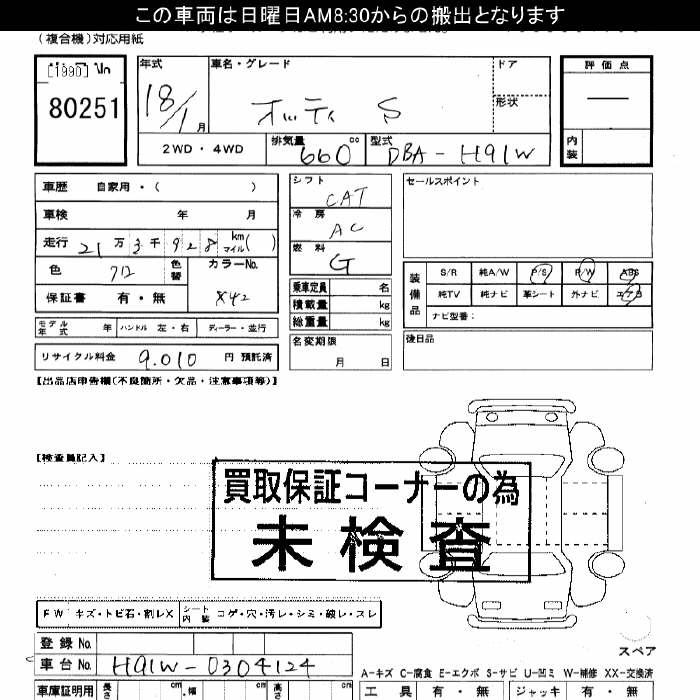 この車両は日曜日AM8:30からの搬出となります
(複合機)対応用紙
[1990]
80251
年式
18/1月
車名・グレード
オッティ S
ドア
形状
評価点
―
内装
2WD・4WD
排気量
660 cc
型式
DBA-H91W
車歴 自家用・( )
車検 年 月
走行 21万3千928 km マイル( )
色
色替
カラーNo.
X42
保証書 有・無
シフト
CAT
冷房
AC
燃料
G
セールスポイント
装備品
S/R 純A/W P/S P/W ABS
純TV 純ナビ 革シート 外ナビ エアB
ナビ型番:
乗車定員 名
積載量 kg
総重量 kg
モデル年式 年 ハンドル 左・右 ディーラー・並行
名変期限
月 日
後日品
リサイクル料金 9.010 円 預託済
【出品店申告欄(不良箇所・欠品・注意事項等)】
【検査員記入】
買取保証コーナーの為
未検査
FW キズ・トビ石・割レX シート内装 コゲ・穴・汚レ・シミ・破レ・スレ
登録No.
車台No. H91W-0304124
スペア
A-キズ C-腐食 E-エクボ S-サビ U-凹ミ W-補修 XX-交換済
車庫証明用 長さ cm ・幅 cm 高さ cm
工具 有・無 ジャッキ 有・無